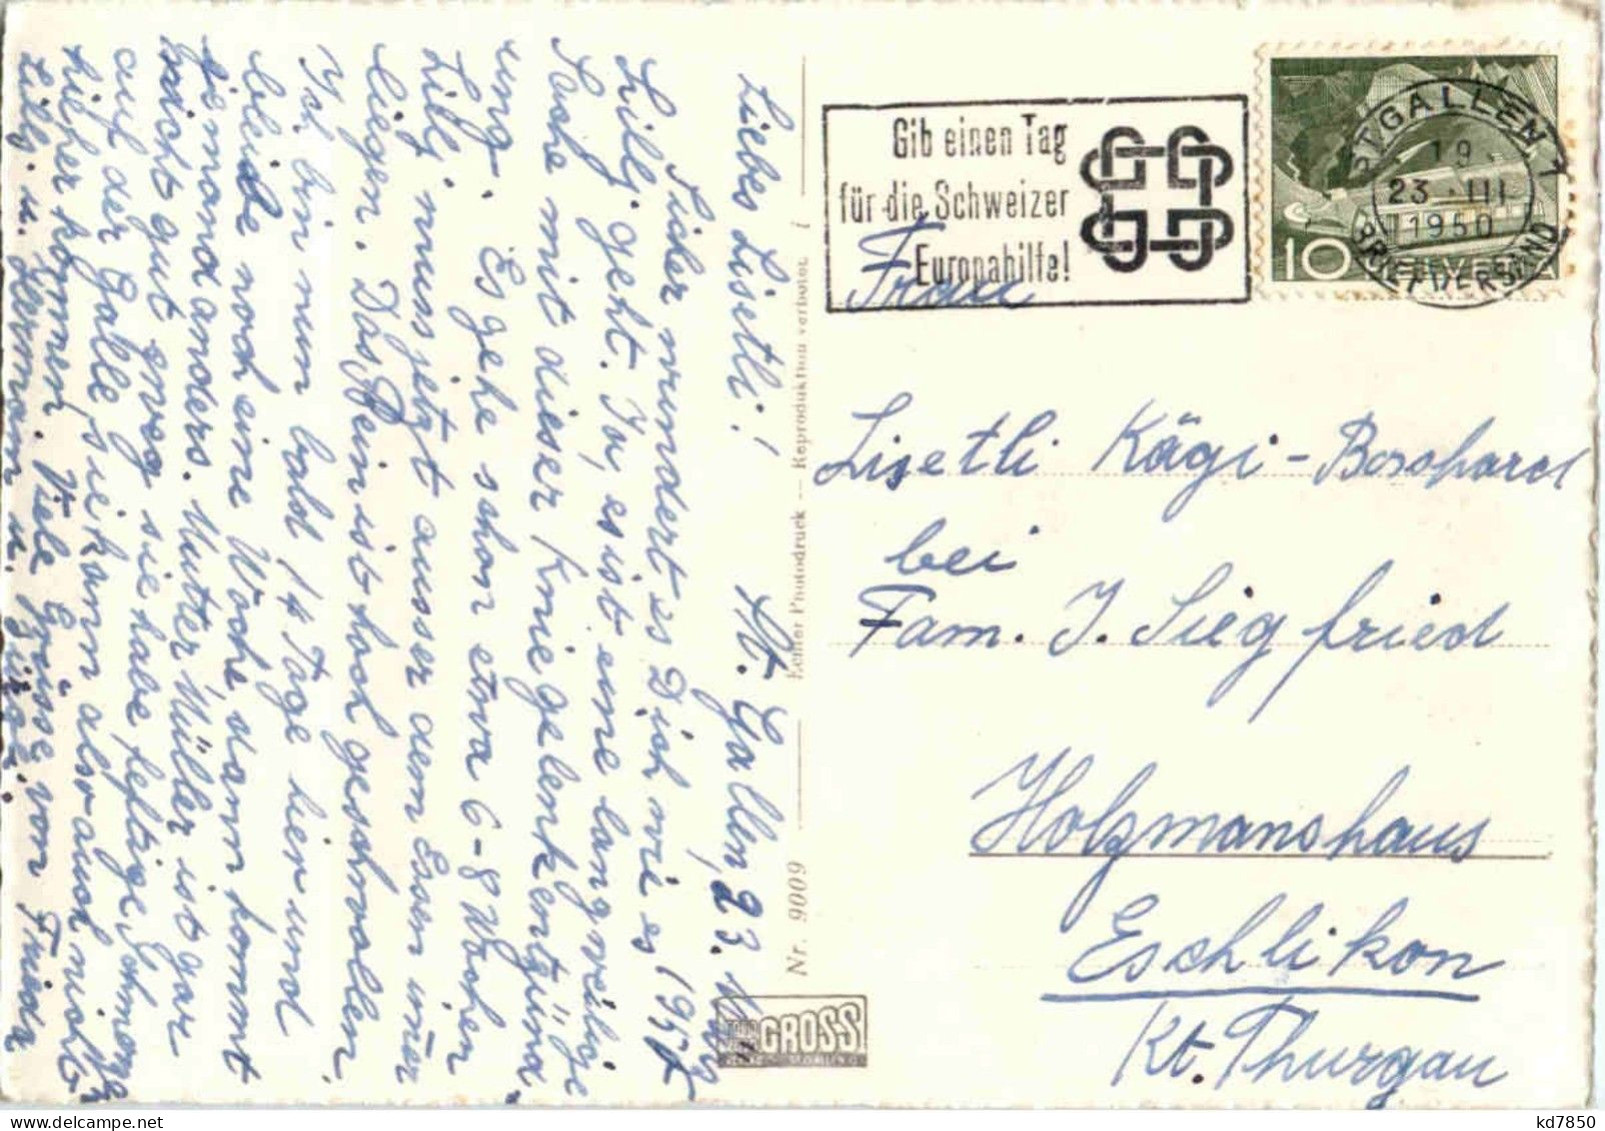 Liebes Lisetli! St. Gallen, 23. März 1950
Sicher wundert es Dich wie es
Lillj geht. Ja, es ist eine langweilige
Sache mit dieser Kniegelenkentzünd-
ung. Es gehe schon etwa 6-8 Wochen
Lillj muss jetzt ausser dem Essen immer
liegen. Das Bein ist hoch geschwollen.
Ich bin nun bald 14 Tage hier und
bleibe noch eine Woche, dann kommt
jemand anders. Mutter Müller ist gar
nicht gut zweg sie habe heftige Schmerz
auf der Galle, sie kann also auch nicht
hieher kommen. Viele Grüsse von Frieda
Lillj u. Hermann u.
Nr. 9009
Photodruck — Reproduktion verboten
GROSS
ST. GALLEN
Gib einen Tag
für die Schweizer
Europahilfe!
ST. GALLEN 1
19
23. III
1950
BRIEFVERSAND
10 HELVETIA
Frau
Lisetli Kägi - Bosshard
bei
Fam. J. Siegfried
Holzmanshaus
Eschlikon
Kt. Thurgau
kd7850